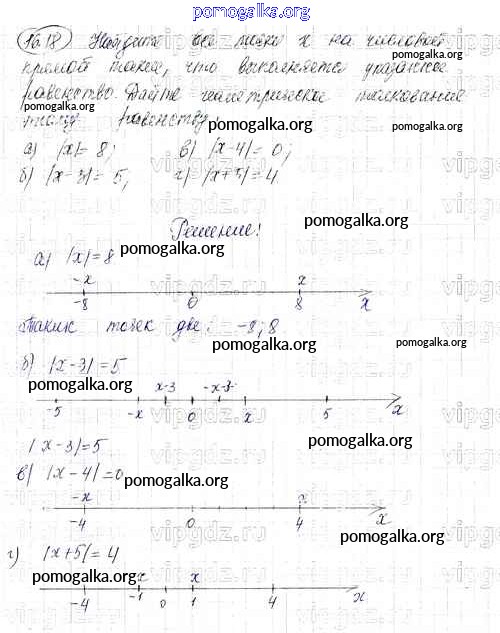 pomogalka.org
16.18 Найдите все точки x на числовой
прямой такие, что выполняется указанное
равенство. Дайте геометрическое толкование
pomogalka.org pomogalka.org
этому равенству
pomogalka.org
а) |x|= 8; в) |x-4|= 0;
pomogalka.org pomogalka.org
б) |x-3|= 5; г) |x+5|= 4.
pomogalka.org
Решение:
pomogalka.org
vipgdz.ru
а) |x|=8
-x x
-8 0 8 x
Таких точек две: -8; 8.
pomogalka.org
vipgdz.ru
pomogalka.org
б) |x-3|=5
pomogalka.org x-3 -x-3
-5 -x 0 x 5 x
vipgdz.ru
|x-3|=5 pomogalka.org
в) |x-4|=0
pomogalka.org
-x x
-4 0 4 x
pomogalka.org
vipgdz.ru
г) |x+5|=4
pomogalka.org x pomogalka.org
-4 -1 0 1 4 x
vipgdz.ru